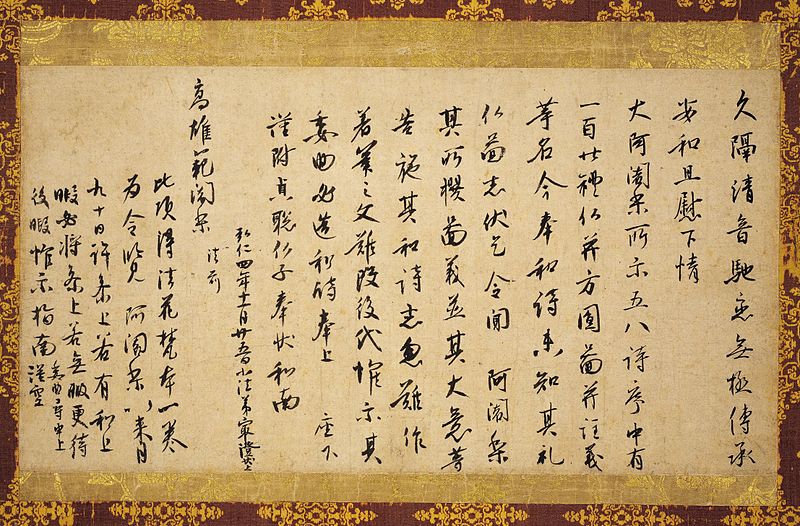 久隔清音馳恋无極傳承
安和且慰下情
大阿闍梨所示五八詩序中有
一百廿禮仏并方圓圖并註義
等名今奉和詩未知其礼
仏圖者伏乞令聞　阿闍梨
其所撰圖義並其大意等
告施其和詩者忽難作
著筆之文難改後代惟示其
委曲必造和詩奉上　座下
謹附貞聡仏子奉状和南
弘仁四年十一月廿五日小法弟最澄状上
高雄範闍梨
法前
此頃得法花梵本一巻
為令覧　阿闍梨以来月
九十日許参上若有和上
暇必将参上若无暇更待
後暇惟示指南
謹空